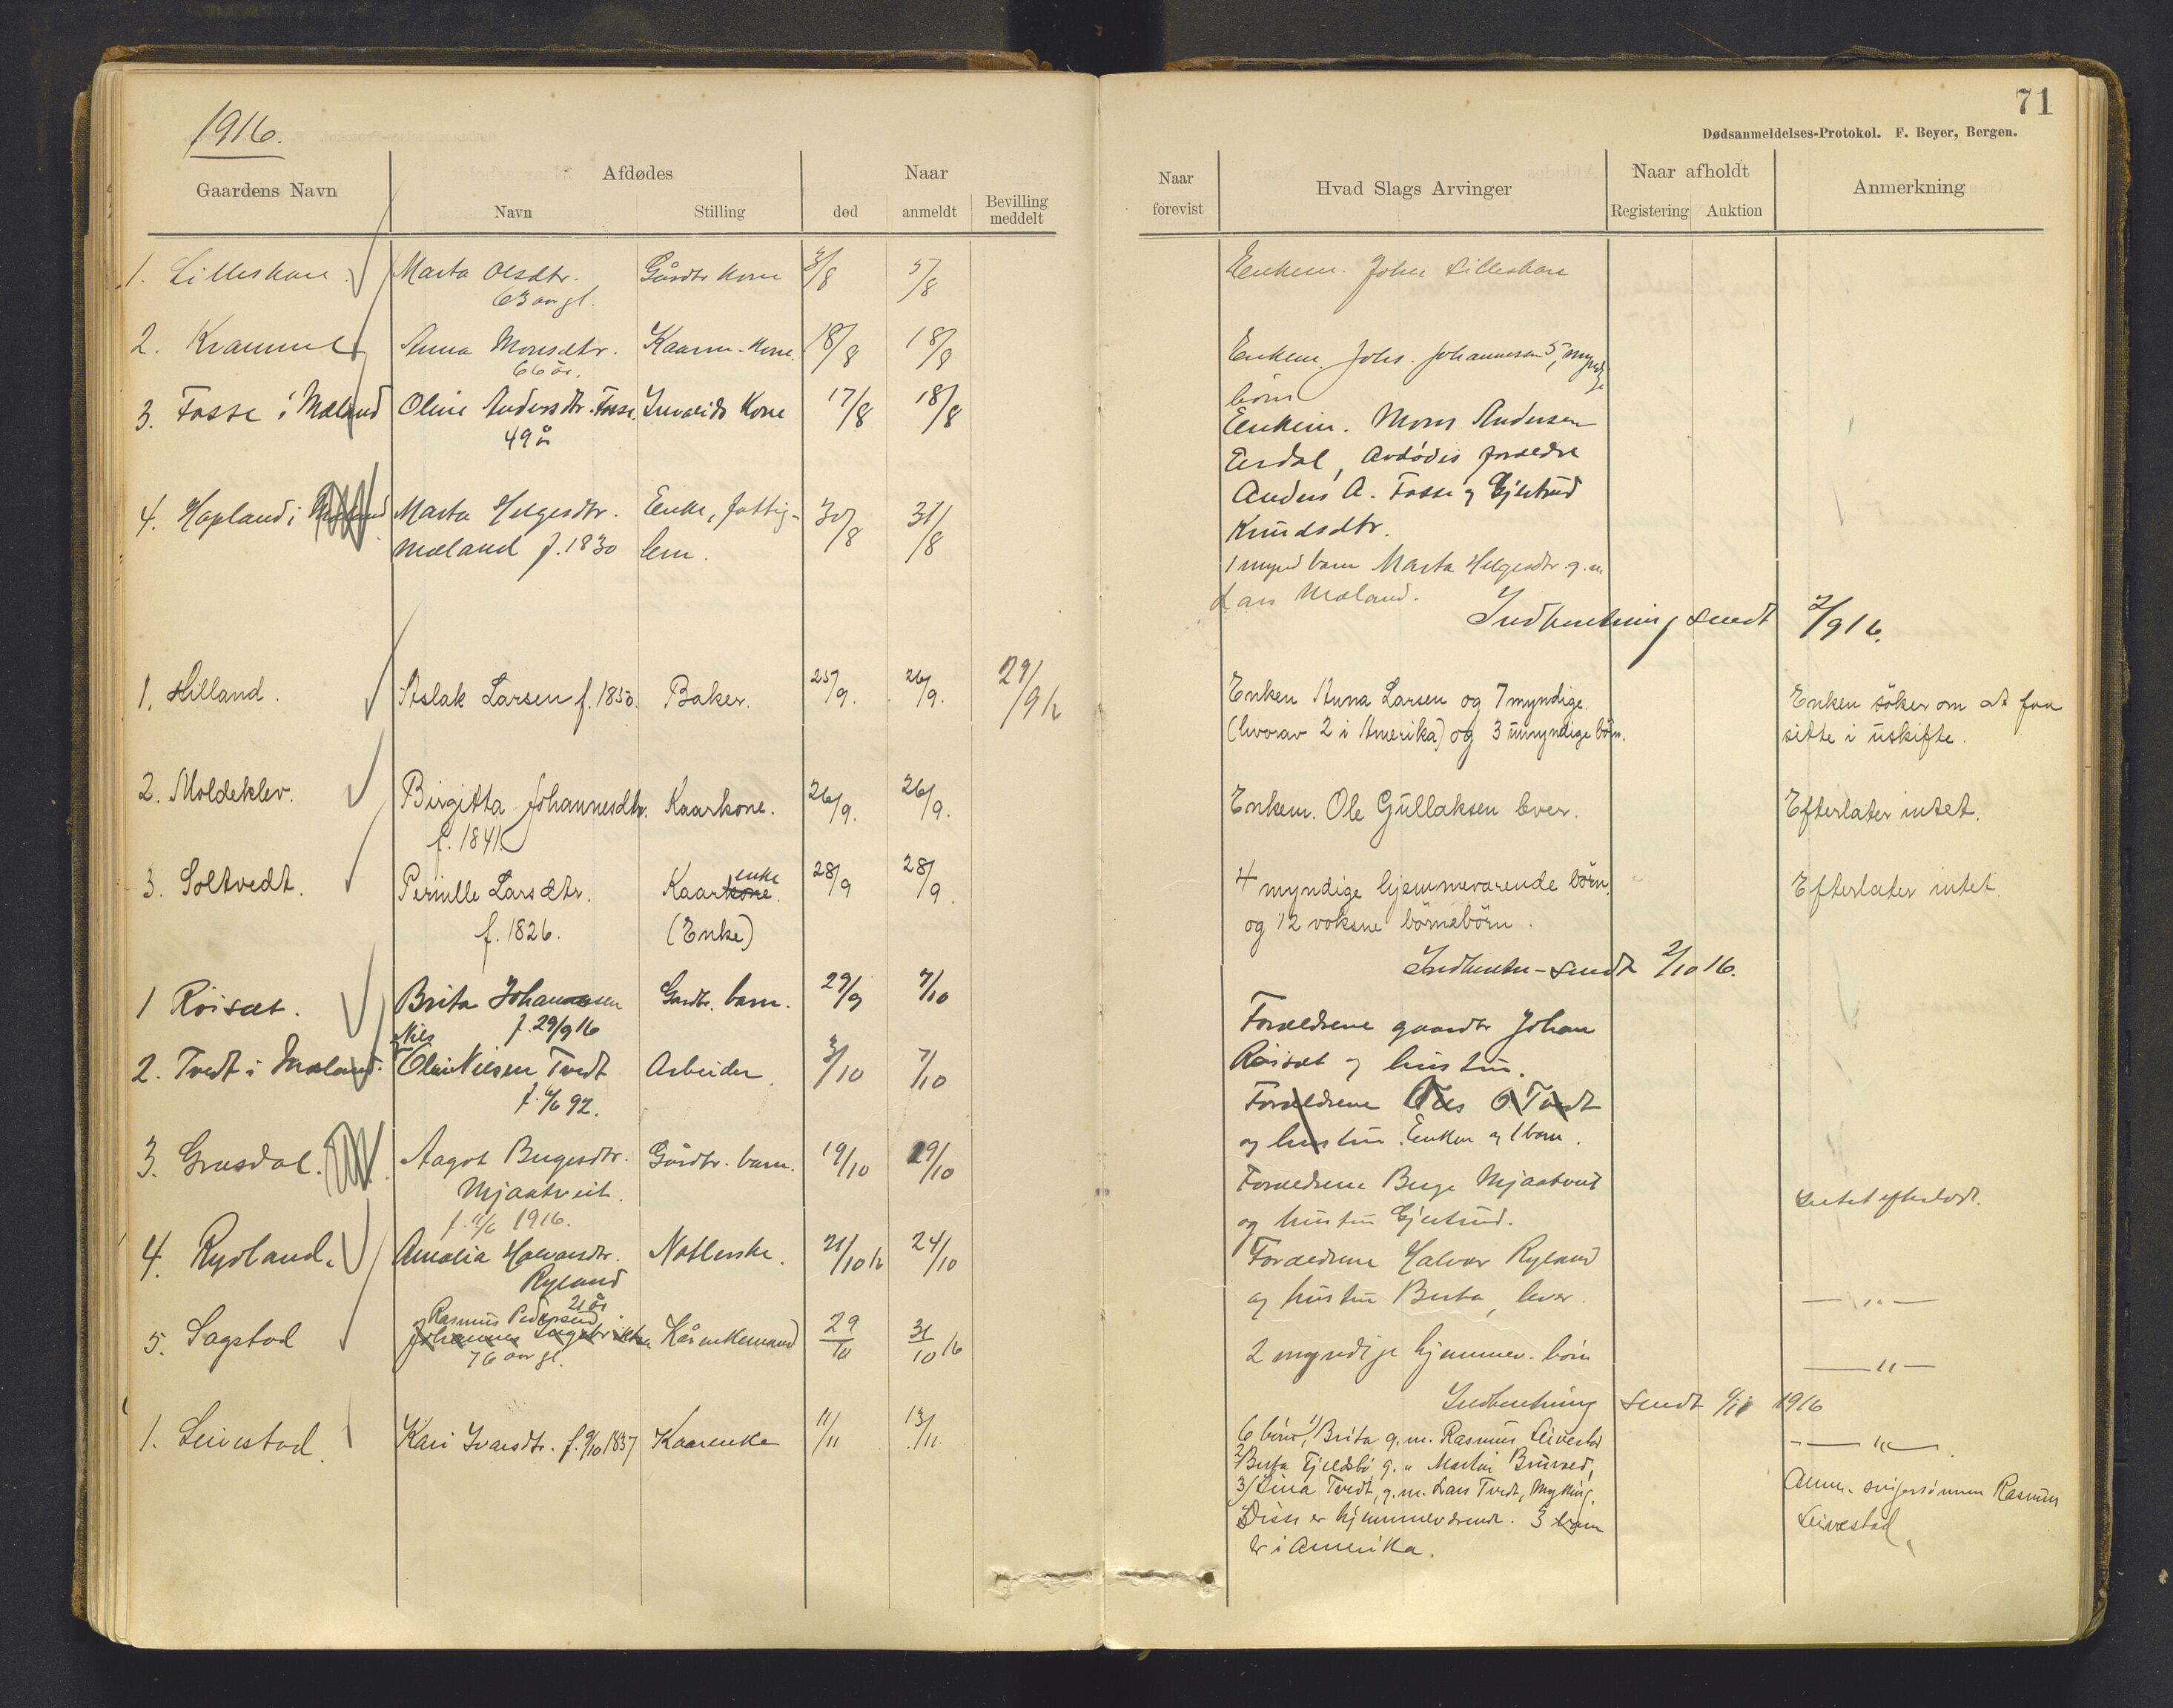 1916.
71
Dødsanmeldelses-Protokol. F. Beyer, Bergen.
Gaardens Navn
Afdødes
Navn
Stilling
Naar
død
anmeldt
Bevilling
meddelt
Naar
forevist
Hvad Slags Arvinger
Naar afholdt
Registering
Auktion
Anmerkning
1. Lilleskare Marta Olsdtr. Gårdbr kone 3/8 5/8 Enkem. John Lilleskare
63 aar gl.
2. Anna Monsdtr. 18/8 18/8 Enkem. Johs. Johannessen 5 myndige
66 år. børn
3. Fosse i Mæland Oline Andersdtr. Fosse. Invalids Kone 17/8 18/8 Enkem. Mons Andersen
49 år
Eirdal, avdødes forældre
Anders A. Fosse og Gjertrud
Knudsdtr.
4. Hopland i Marta Helgesdtr. Enke, fattig- 30/8 31/8
Mæland f. 1830 lem.
1 mynd barn Marta Helgesdtr g.m.
Lars Mæland.
Indberetning sendt 2/9 16.
1. Hilland. Aslak Larsen f. 1850. Baker. 25/9. 26/9. 29/9 16 Enken Anna Larsen og 7 myndige Enken søker om at faa
(hvorav 2 i Amerika) og 3 umyndige børn. sitte i uskifte.
2. Moldeklev. Birgitta Johannesdtr. Kaarkone. 26/9. 26/9. Enkem. Ole Gullaksen lever. Efterlater intet.
f. 1841
3. Soltvedt. Pernille Larsdtr. Kaarkone. enke 28/9 28/9. 4 myndige hjemmeværende børn. Efterlater intet.
f. 1826. (Enke) og 12 voksne børnebørn.
Indberetn - sendt 2/10 16.
1 Röisæt. Brita Johannessen Gardbr. barn. 29/9 7/10 Forældrene gaardbr Johan
f. 29/9 16 Röisæt og hustru.
2. Tvedt i Mæland. Nils Olai Nilsen Tvedt Arbeider. 3/10 7/10 Forældrene O. Tvedt
92. og hustru. Enken og 1 barn.
3. Aagot Bugesdtr. Gårdbr. barn. 19/10 29/10 Forældrene Buge Mjaatveit
Mjaatveit. og hustru Gjertrud. Intet efterladt.
1916.
4. Rydland. Amalia Halvorsdtr. 21/10 16 24/10 Forældrene Halvor Ryland
Ryland og hustru Berta, lever. — " —
21 år
5. Sagstad Rasmus Pedersen Kårenkemand 29/10 31/10 16 2 myndige hjemmev. børn — " —
76 aar gl.
Indberetning sendt 1916
1. Leivestad. Kari Ivarsdtr. f. 9/10 1837 Kaarenke 11/11 13/11 6 børn, 1) Brita g.m. Rasmus Leivestad — " —
2) Berta Fjeldsbö g. "
3) Lina Tvedt, g.m. Lars Tvedt, Myking. Anm. svigersønnen Rasmus
Disse er hjemmeværende. 3 barn Leivestad
er i Amerika.